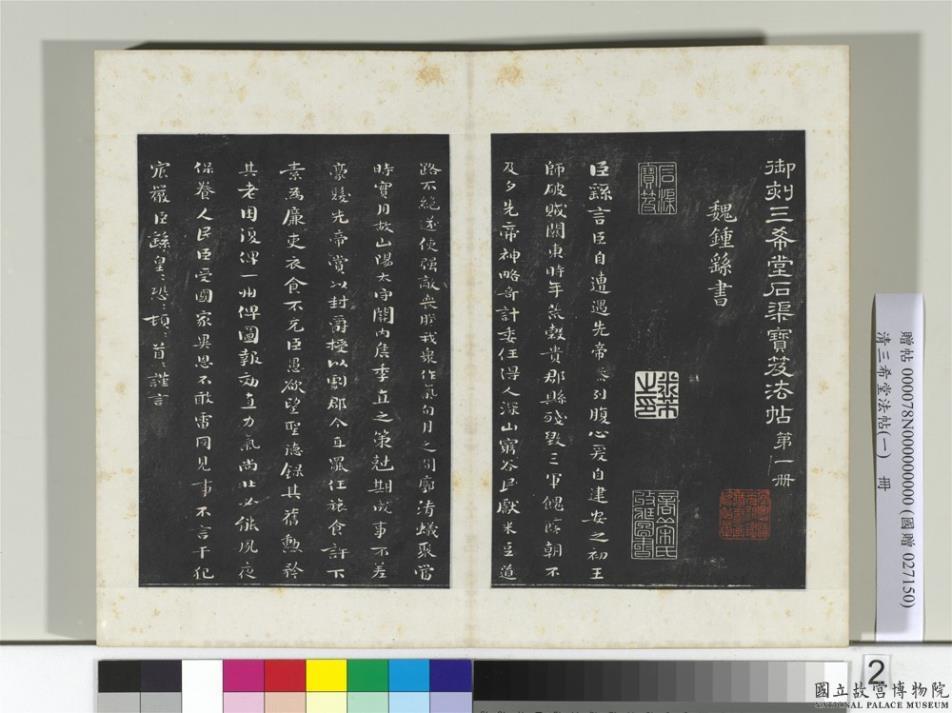 御刻三希堂石渠寶笈法帖第一冊
魏鍾繇書
石渠寶笈
臣繇言臣自遭遇先帝忝列腹心爰自建安之初王
師破賊關東時年荒穀貴郡縣殘毀三軍餽饟朝不
及夕先帝神略奇計委任得人深山窮谷民獻米豆道
路不絕遂使強敵喪膽我衆作氣旬月之閒廓清蟻聚當
時實用故山陽太守關內侯季直之策尅期成事不差
豪髮先帝賞以封爵授以劇郡今直罷任旅食許下
素爲廉吏衣食不充臣愚欲望聖德錄其舊勳矜
其老困復俾一州俾圖報効直力氣尚壯必能夙夜
保養人民臣受國家異恩不敢雷同見事不言干犯
宸嚴臣繇皇皇恐恐頓首頓首謹言
贈帖 000078N000000000 (國贈 027150)
清三希堂法帖(一) 冊
2
國立故宮博物院
NATIONAL PALACE MUSEUM